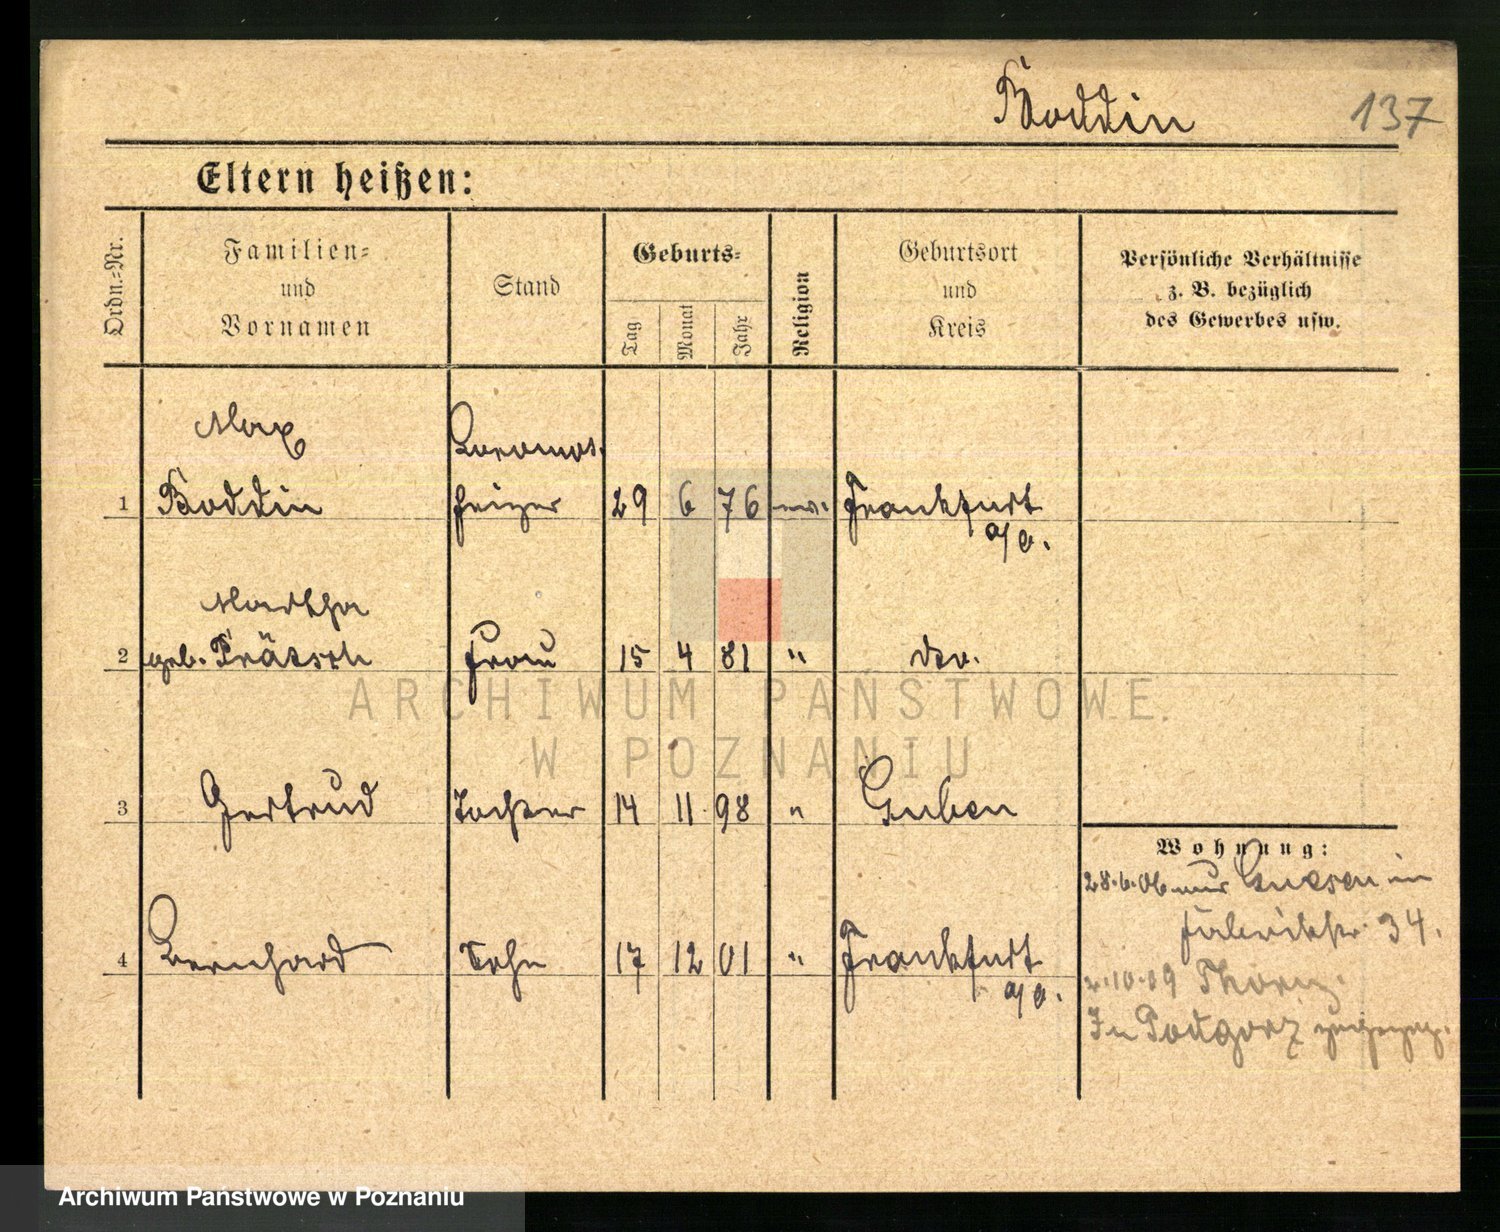 Boddin 137
Eltern heißen:
Ordn.=Nr.
Familien=
und
Vornamen
Stand
Geburts=
Tag
Monat
Jahr
Religion
Geburtsort
und
Kreis
Persönliche Verhältnisse
z. B. bezüglich
des Gewerbes usw.
Max
1 Boddin heizer 29 6 76 ev. Frankfurt
a/O.
Martha
2 geb. Frau 15 4 81 " dto.
ARCHIWUM PAŃSTWOWE
W POZNANIU
3 Gertrud Tochter 14 11 98 " Guben
Wohnung:
28.6.06 Gnesen in
Fabrikstr. 34.
4 Bernhard Sohn 17 12 01 " Frankfurt
a/O.
2.10.09 Thorn
In Podgorz
Archiwum Państwowe w Poznaniu